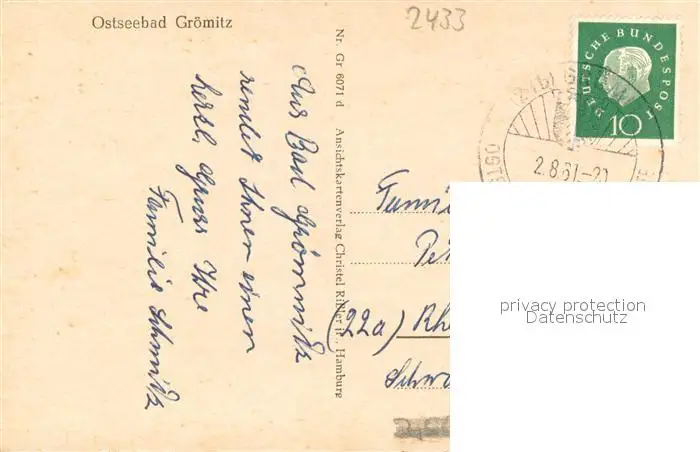 Ostseebad Grömitz
2433
Nr. Gr 6071 d Ansichtskartenverlag Christel Rißler jr., Hamburg
Aus Bad Grömmitz
sendet Ihnen einen
herzl. Gruss Ihre
Familie Schmitz
DEUTSCHE BUNDESPOST
10
2.8.61-20
Famili
Pet
(22a) Rhe
Schw
privacy protection
Datenschutz